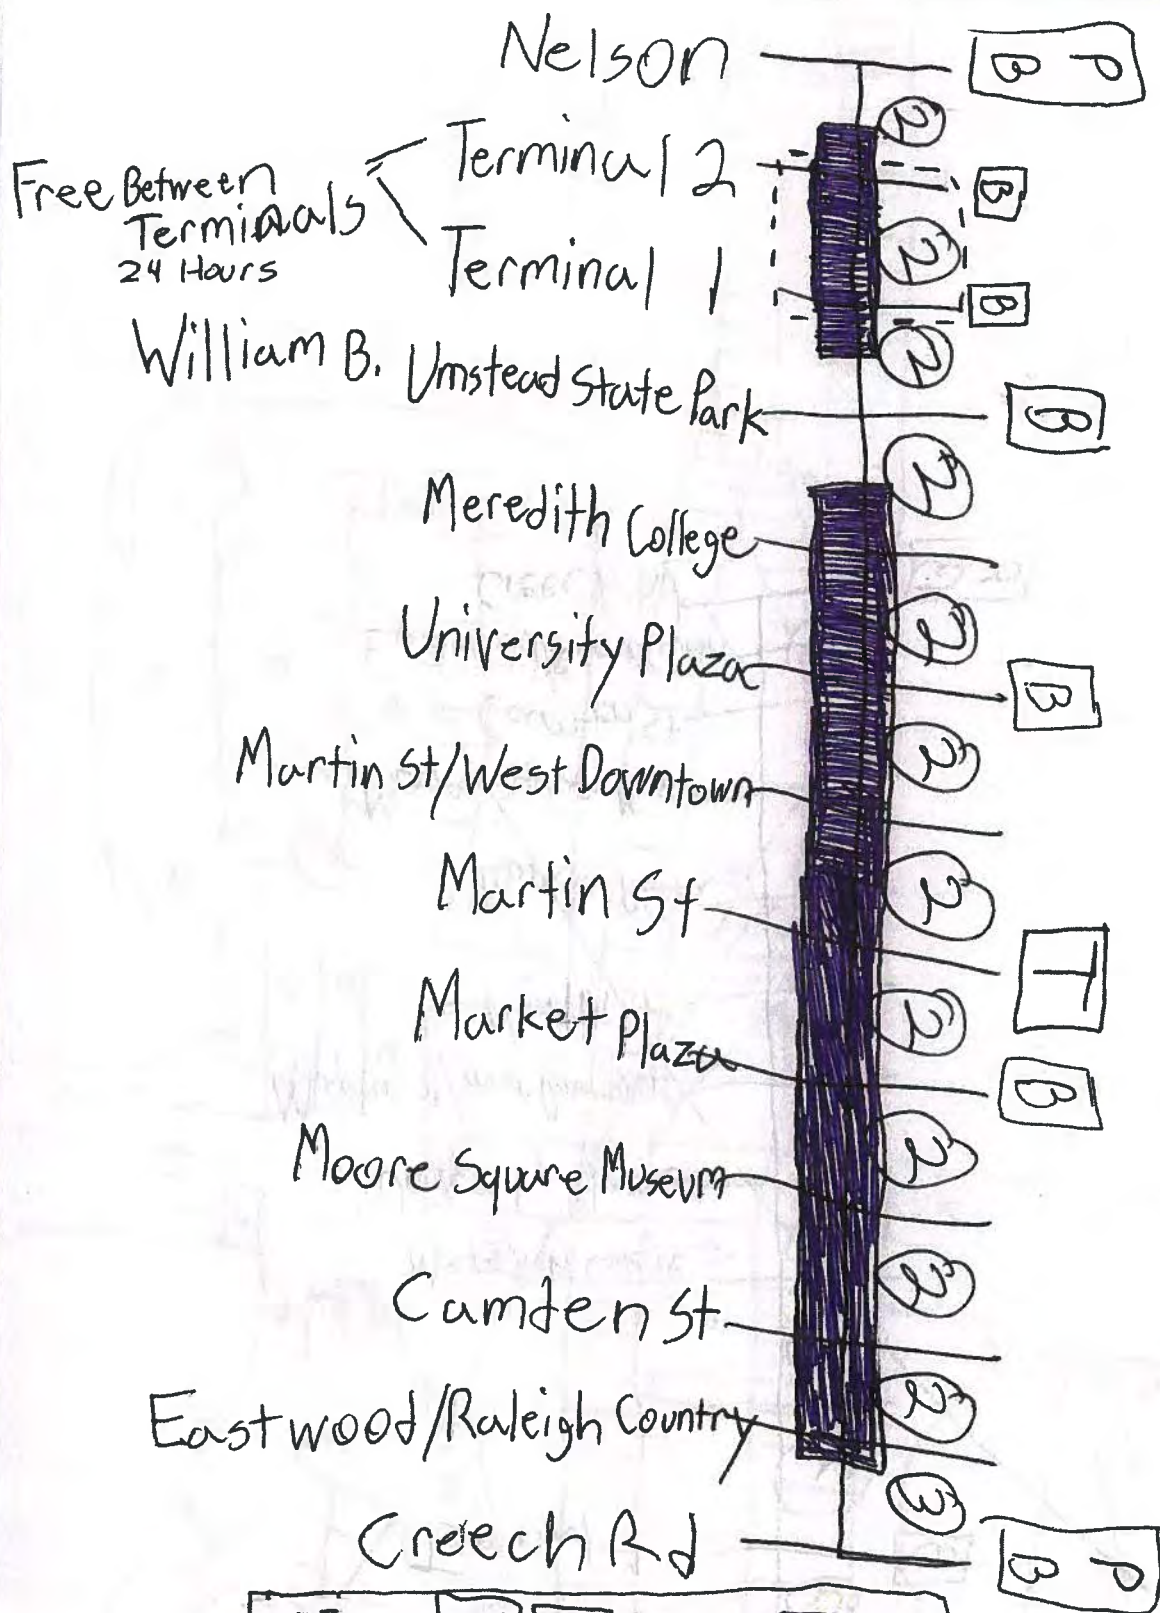 Nelson P B
2
Terminal 2 B
Free Between
Terminals
24 Hours
2
Terminal 1 B
2
William B. Umstead State Park B
2
Meredith College
2
University Plaza B
2
Martin St/West Downtown
2
Martin St T
2
Market Plaza B
2
Moore Square Museum
2
Camden St
2
Eastwood/Raleigh Country
3
Creech Rd P B